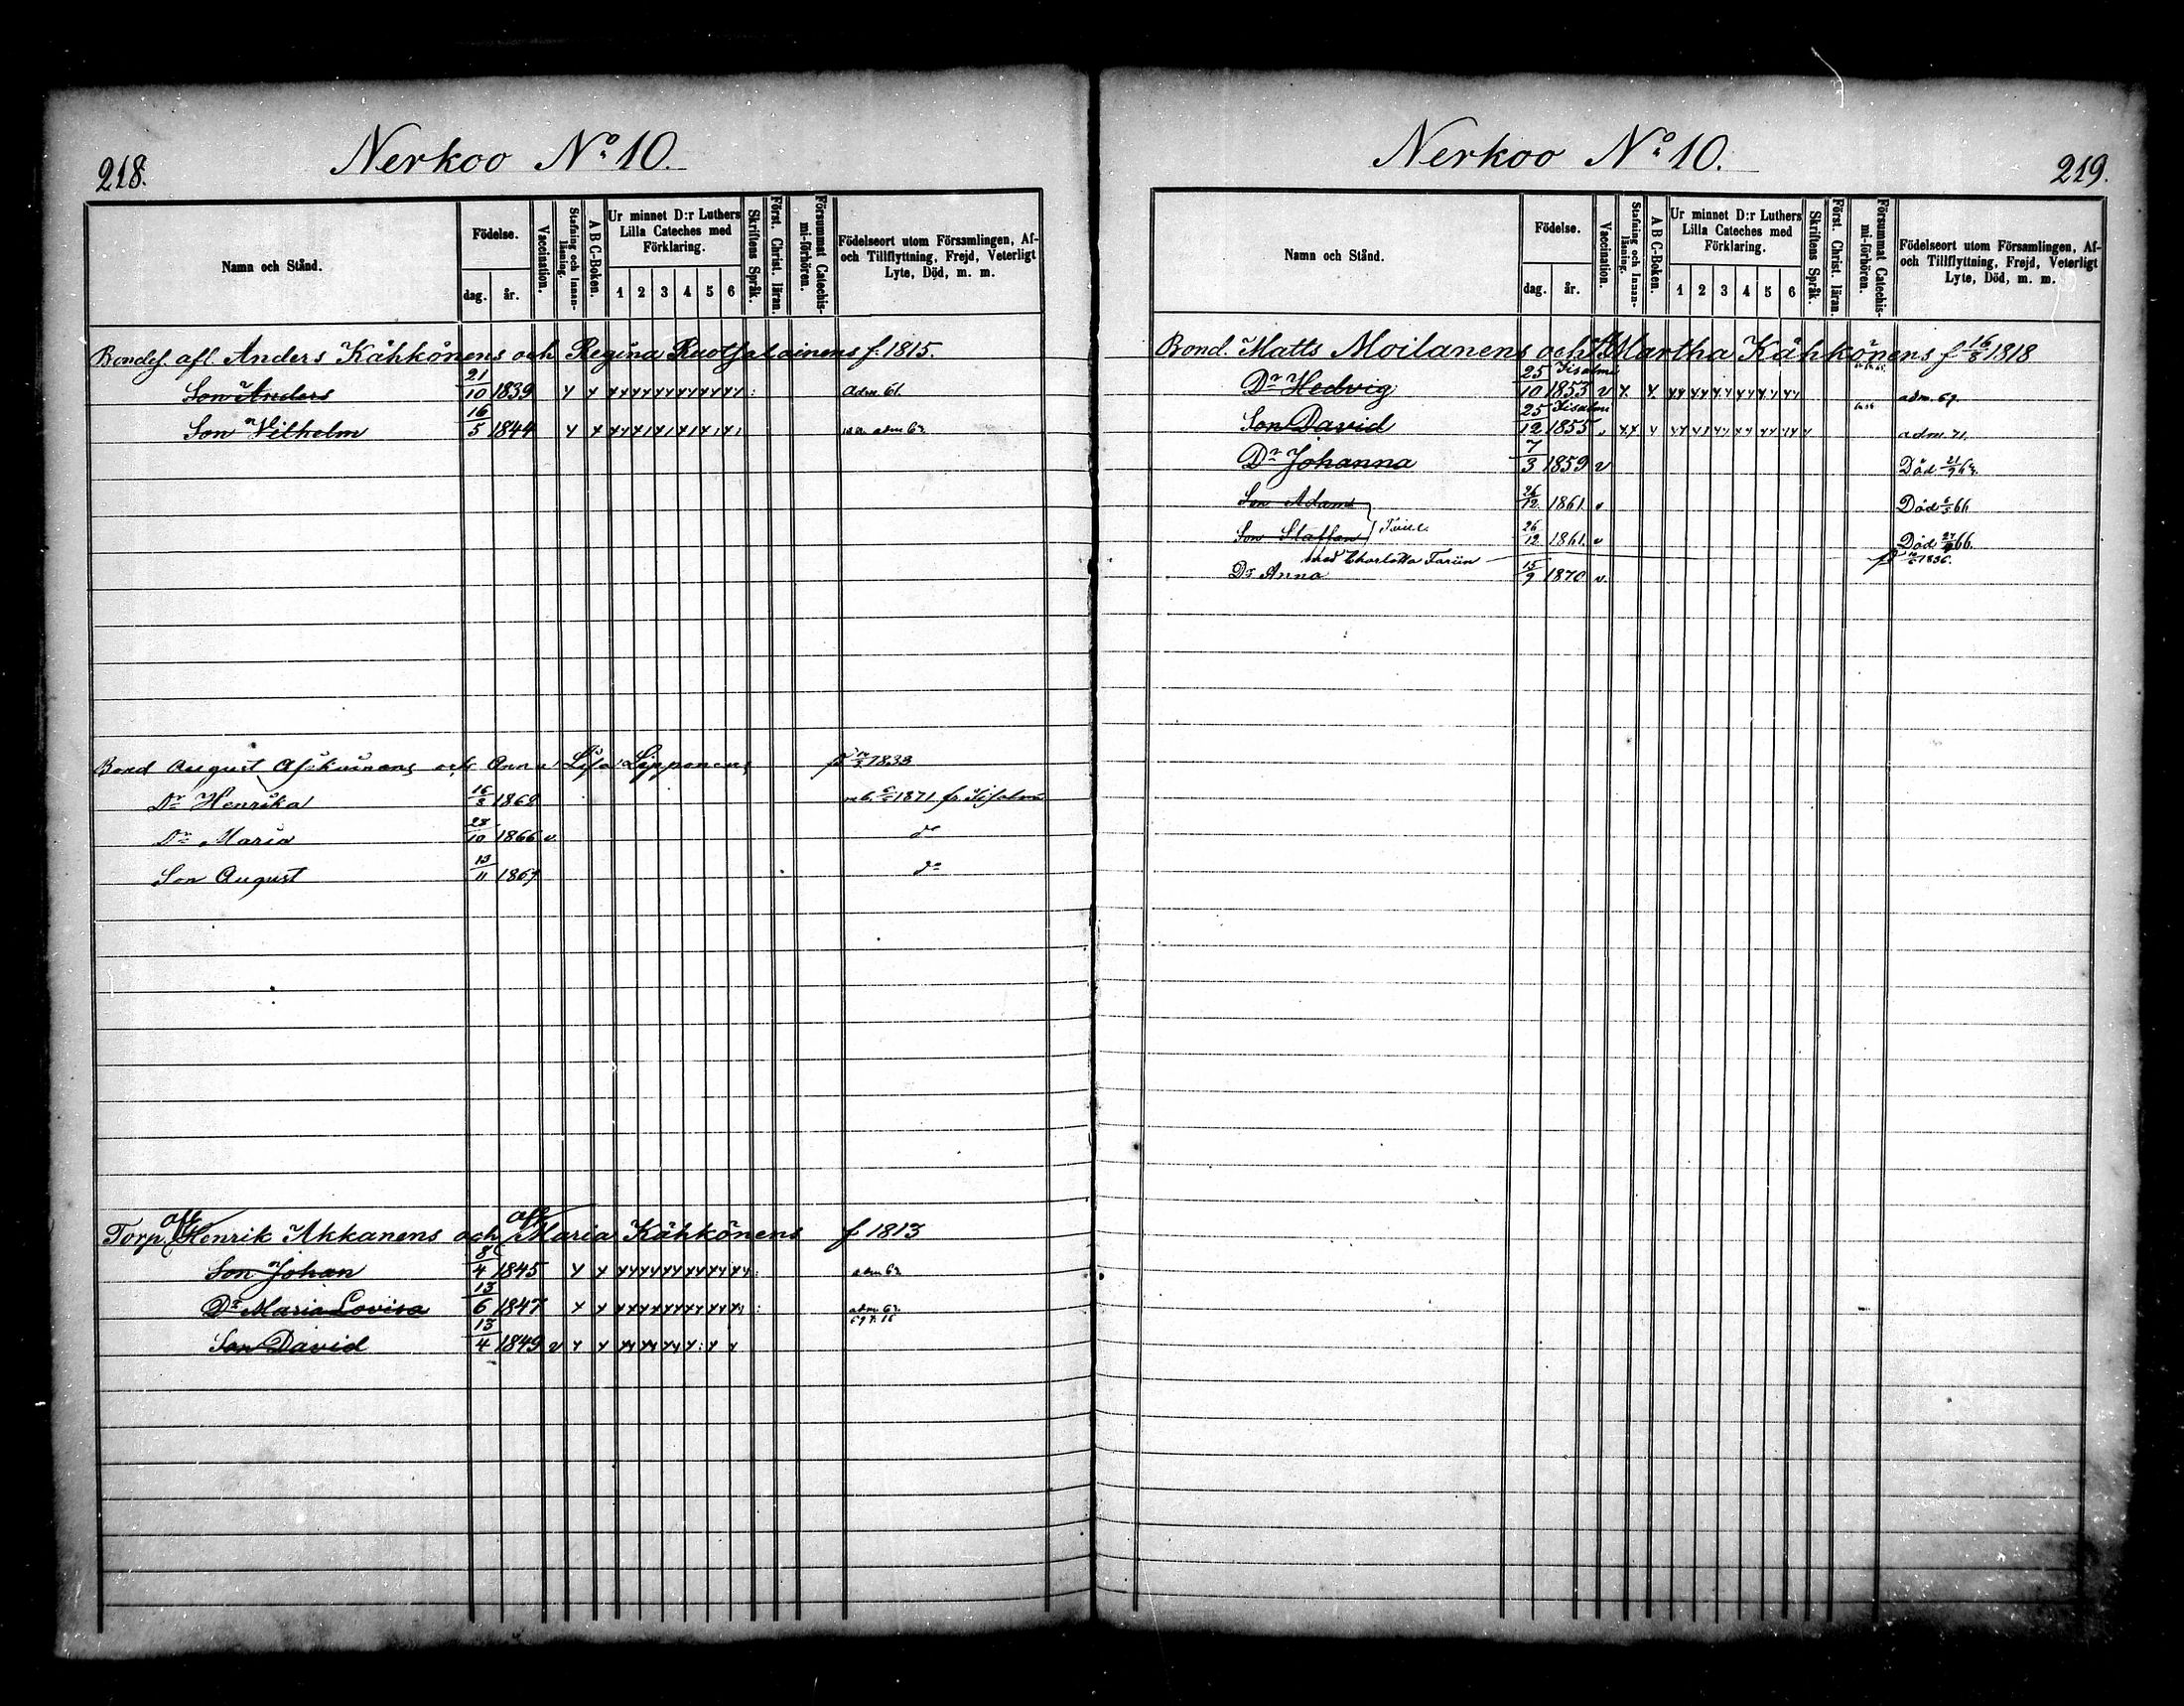 218.
Nerkoo No 10.
Namn och Stånd.
Födelse.
dag. år.
Vaccination.
Stafning och Innan-läsning.
A B C-Boken.
Ur minnet D:r Luthers Lilla Cateches med Förklaring.
1 2 3 4 5 6
Skriftens Språk.
Först. Christ. läran.
Försummat Catechis-mi-förhören.
Födelseort utom Församlingen, Af- och Tillflyttning, Frejd, Veterligt Lyte, Död, m. m.
Bondes. afl. Anders Kähkönens och Regina Ruotsalainens f. 1815.
Son Anders 21/10 1839 Adm. 61.
Son Vilhelm 16/5 1844 adm 62
Bond August och Anna Lisa Lipponens 1833
Dr Henrika 16/3 1862 1871 fr. Iisalmi
Dr Maria 28/10 1866 v. do
Son August 13/11 1869 do
Torp. afl. Henrik Akkanens och afl. Maria Kähkönens f 1813
Son Johan 8/4 1845 adm 62
Dr Maria Lovisa 13/6 1847 adm 62
Son David 13/4 1849 v
Nerkoo No 10.
219.
Namn och Stånd.
Födelse.
dag. år.
Vaccination.
Stafning och Innan-läsning.
A B C-Boken.
Ur minnet D:r Luthers Lilla Cateches med Förklaring.
1 2 3 4 5 6
Skriftens Språk.
Först. Christ. läran.
Försummat Catechis-mi-förhören.
Födelseort utom Församlingen, Af- och Tillflyttning, Frejd, Veterligt Lyte, Död, m. m.
Bond. Matts Moilanens och Martha Kähkönens f 16/8 1818
Dr Hedvig 25/10 Iisalmi 1853 v adm. 69.
Son David 25/12 Iisalmi 1855 v adm. 71.
Dr Johanna 7/3 1859 v Död 21/9
Son Adam 26/12 1861. v Död 6/5 66
Son Staffan 26/12 1861. v Död 66.
med Charlotta 1836.
Dr Anna 15/9 1870 v.